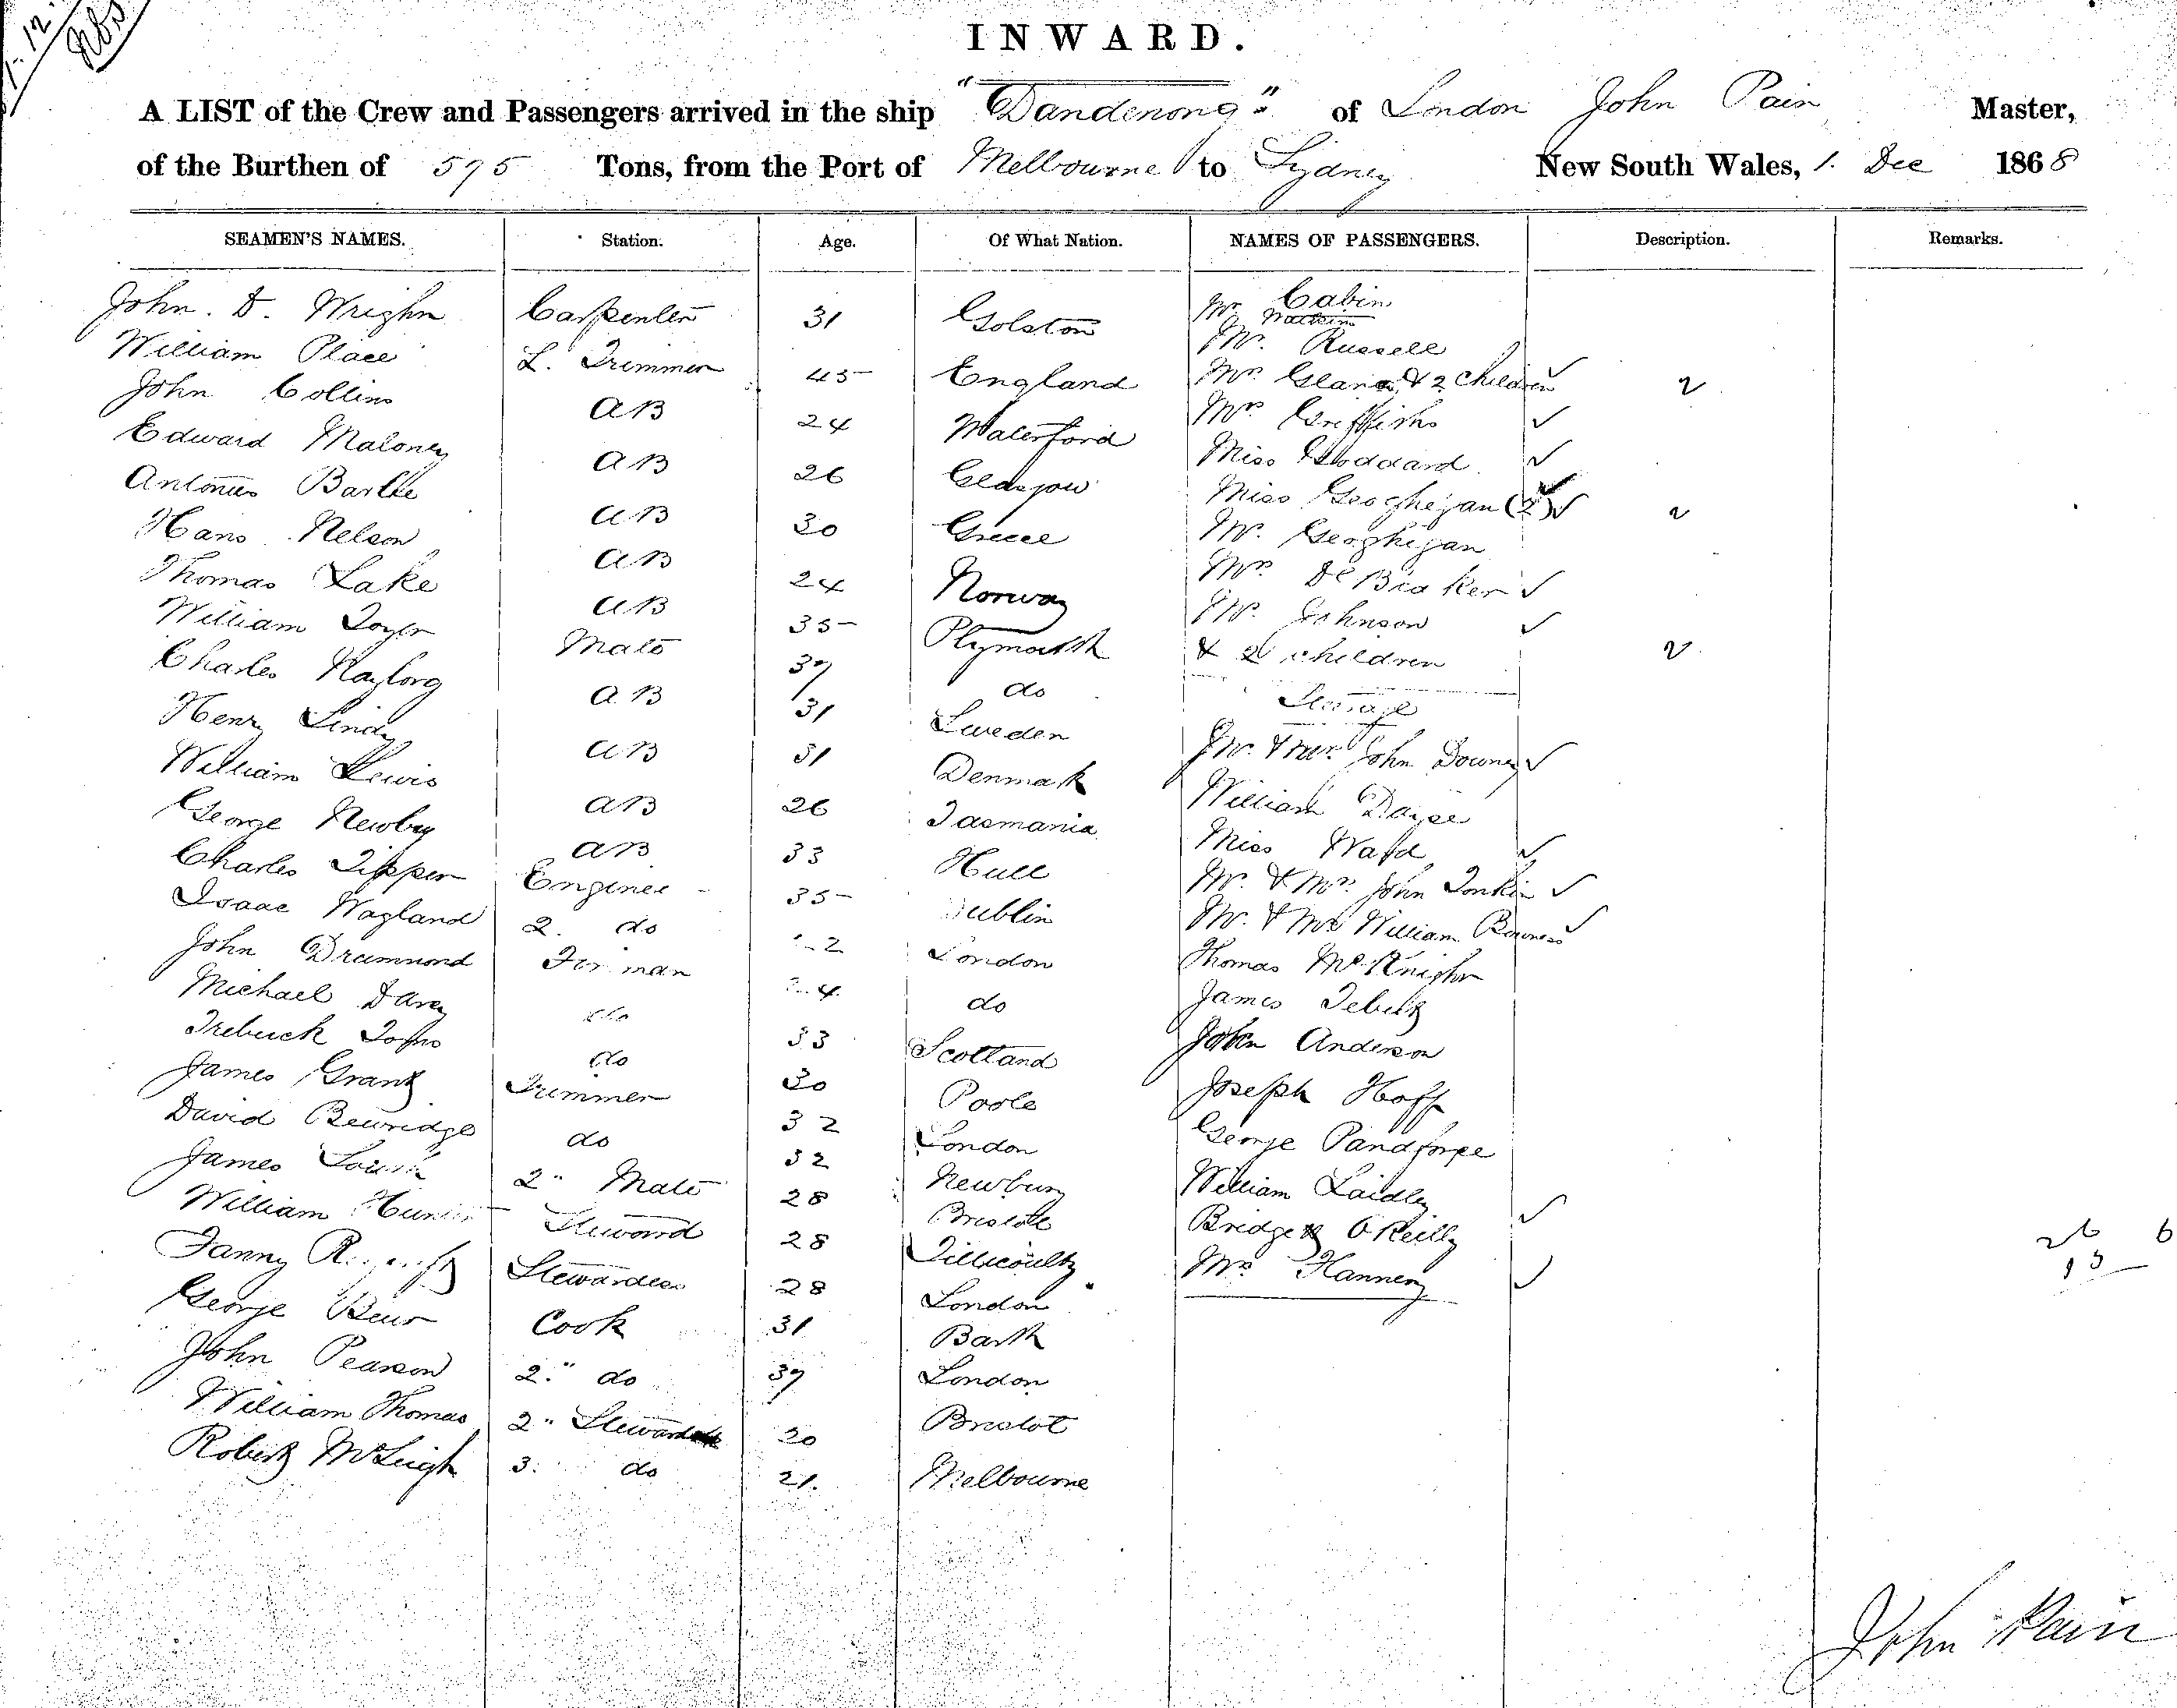 INWARD.
A LIST of the Crew and Passengers arrived in the ship "Dandenong" of London John Pain Master,
of the Burthen of 595 Tons, from the Port of Melbourne to Sydney New South Wales, 1. Dec 1868
SEAMEN'S NAMES. Station. Age. Of What Nation. NAMES OF PASSENGERS. Description. Remarks.
John. D. Wright Carpenter 31 Golston Cabin
William Place L. Trimmer 45 England Mr. Russell
John Collins AB 24 Waterford Mrs & 2 Children 2
Edward Maloney AB 26 Glasgow Mrs Griffiths
Antonus AB 30 Greece Miss Stoddard
Hans Nelson AB 24 Norway Miss Geoghegan (2) 2
Thomas Lake AB 35 Plymouth Mr. Geoghegan
William Mate 37 do Mrs
Charles AB 31 Sweden Mr. Johnson
Henry AB 31 Denmark & 2 children 2
William Lewis AB 26 Tasmania Steerage
George Newby AB 33 Hull Mr. & Mrs. John Downey
Charles Tipper Engineer 35 Dublin William
Isaac Wagland 2. do London Miss Ward
John Drummond Firman do Mr. & Mrs John Tonkin
Michael Darcy do 33 Scotland Mr. & Mrs William
Trebuck John do 30 Poole Thomas McKnight
James Grant Trimmer 32 London James
David Beuridge do 32 Newbury John Anderson
James 2" Mate 28 Bristol Joseph Hoff
William Hunter Steward 28 Tillicoultry George
Fanny Stewardess 28 London William Laidley
George Cook 31 Bath Bridget O'Reilly
John Pearson 2." do 39 London Mrs Hannery
William Thomas 2" Steward 20 Bristol
Robert 3. do 21. Melbourne
26 6
13
John Pain